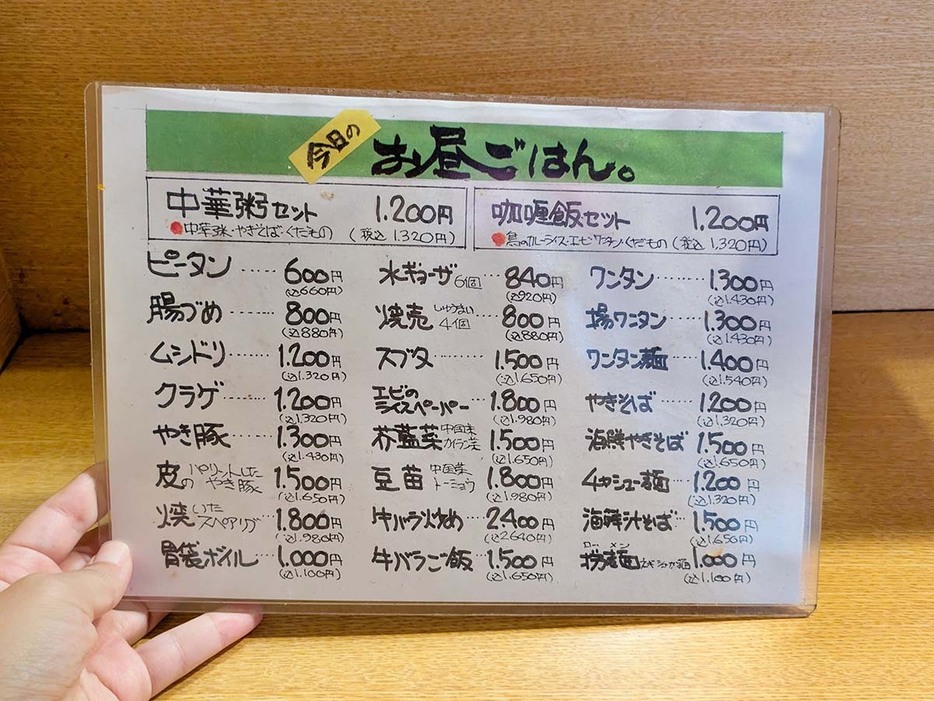 今日の お昼ごはん。
中華粥セット 1.200円
●中華粥・やきそば・くだもの (税込1,320円)
咖喱飯セット 1,200円
●鳥のカレーライス・エビワンタン・くだもの (税込1,320円)
ピータン …… 600円
(込660円)
腸づめ …… 800円
(込880円)
ムシドリ …… 1.200円
(込1.320円)
クラゲ …… 1.200円
(込1.320円)
やき豚 …… 1.300円
(込1.430円)
皮の パリッとした やき豚 1.500円
(込1.650円)
焼いた スペアリブ 1.800円
(込1.980円)
胃袋ボイル … 1.000円
(込1.100円)
水ギョーザ 6個 … 840円
(込920円)
焼売 しゅうまい 4個 … 800円
(込880円)
スブタ …… 1.500円
(込1.650円)
エビの ライスペーパー … 1.800円
(込1.980円)
芥藍菜 中国菜 カイラン菜 1.500円
(込1.650円)
豆苗 中国菜 トーミョウ 1.800円
(込1.980円)
牛バラ炒め … 2.400円
(込2640円)
牛バラご飯 … 1.500円
(込1.650円)
ワンタン …… 1.300円
(込1.430円)
揚ワンタン … 1.300円
(込1.430円)
ワンタン麺 … 1.400円
(込1.540円)
やきそば …… 1.200円
(込1.320円)
海鮮やきそば 1.500円
(込1.650円)
チャーシュー麺 … 1.200円
(込1.320円)
海鮮汁そば … 1.500円
(込1.650円)
ローメン
撈麺 ネギソウガ麺 1.000円
(込1.100円)